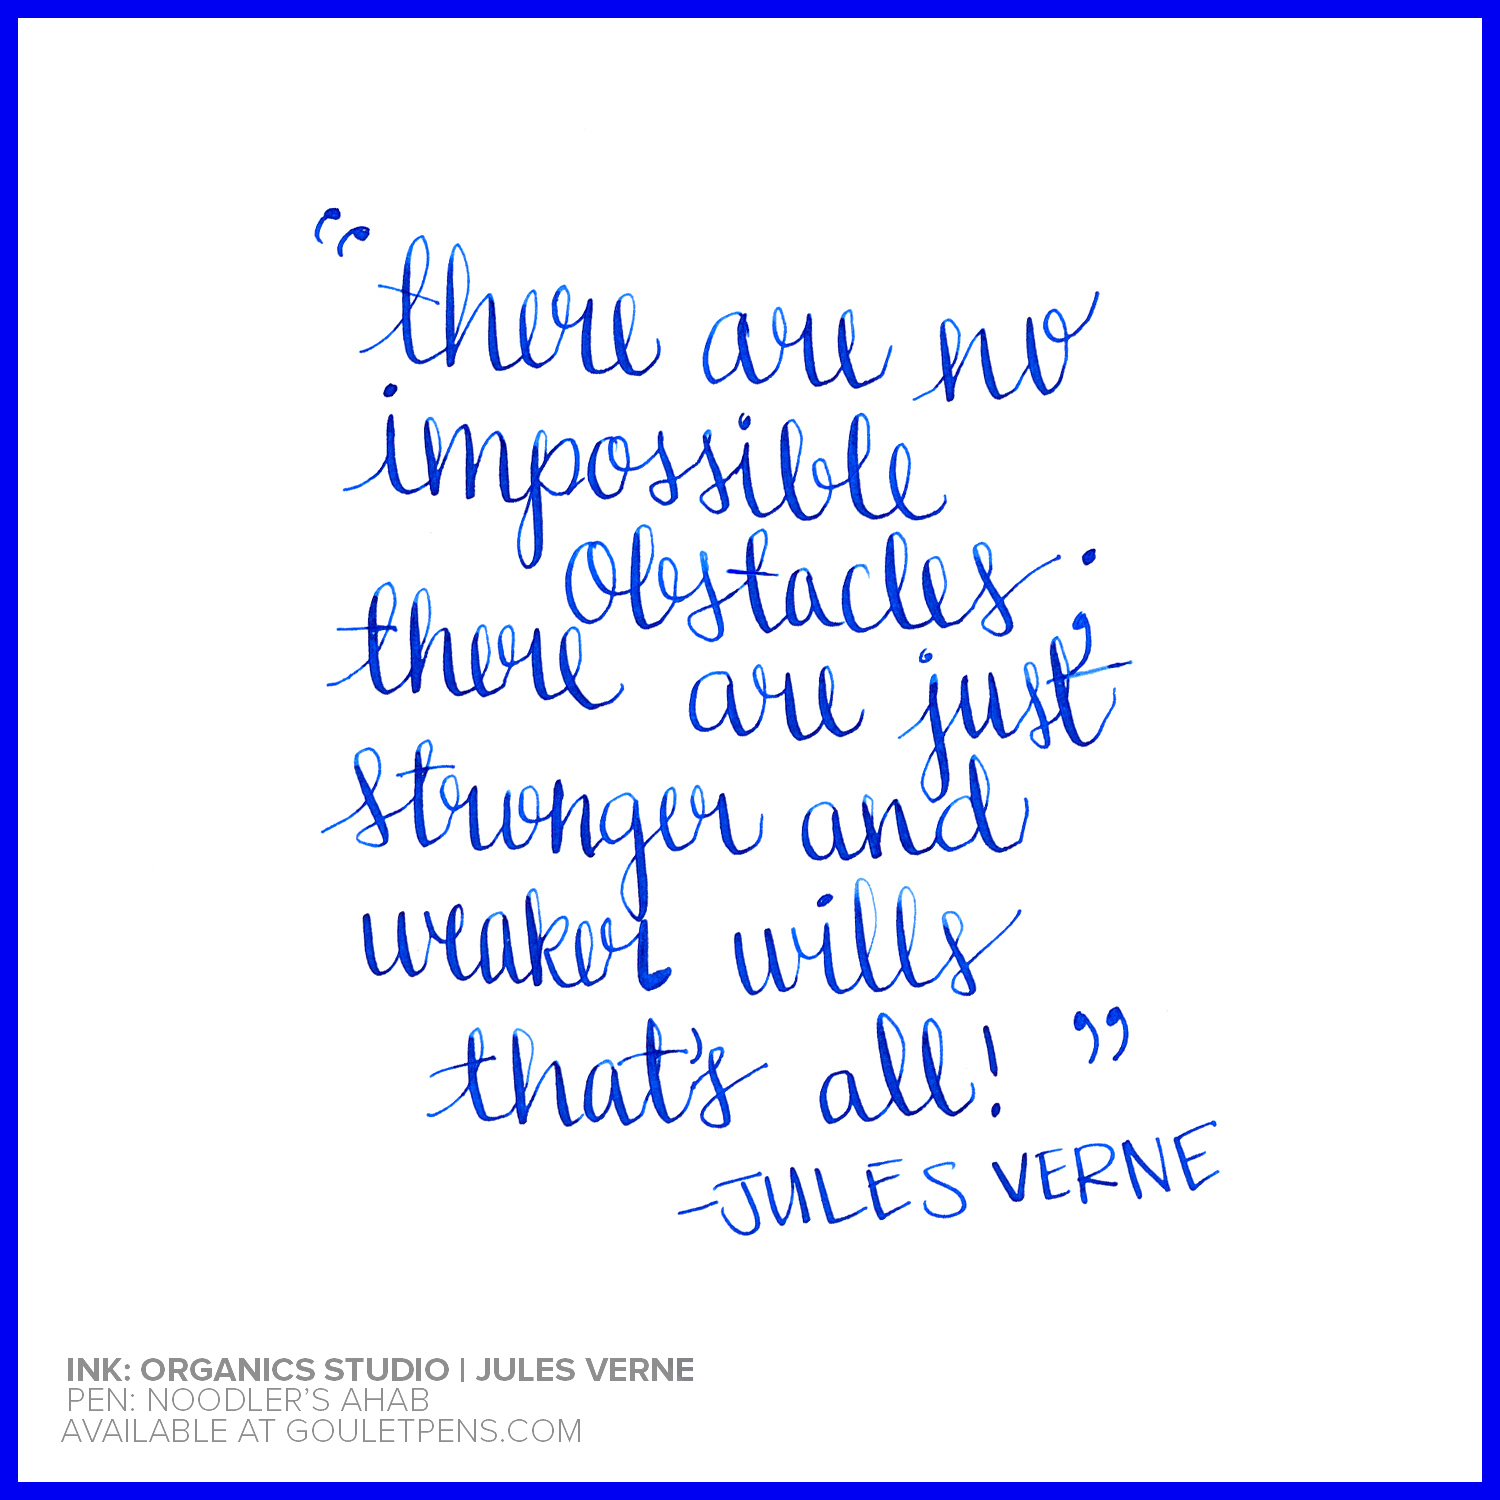 “there are no
impossible
obstacles.
there are just
stronger and
weaker wills
that's all!”
-JULES VERNE
INK: ORGANICS STUDIO | JULES VERNE
PEN: NOODLER’S AHAB
AVAILABLE AT GOULETPENS.COM